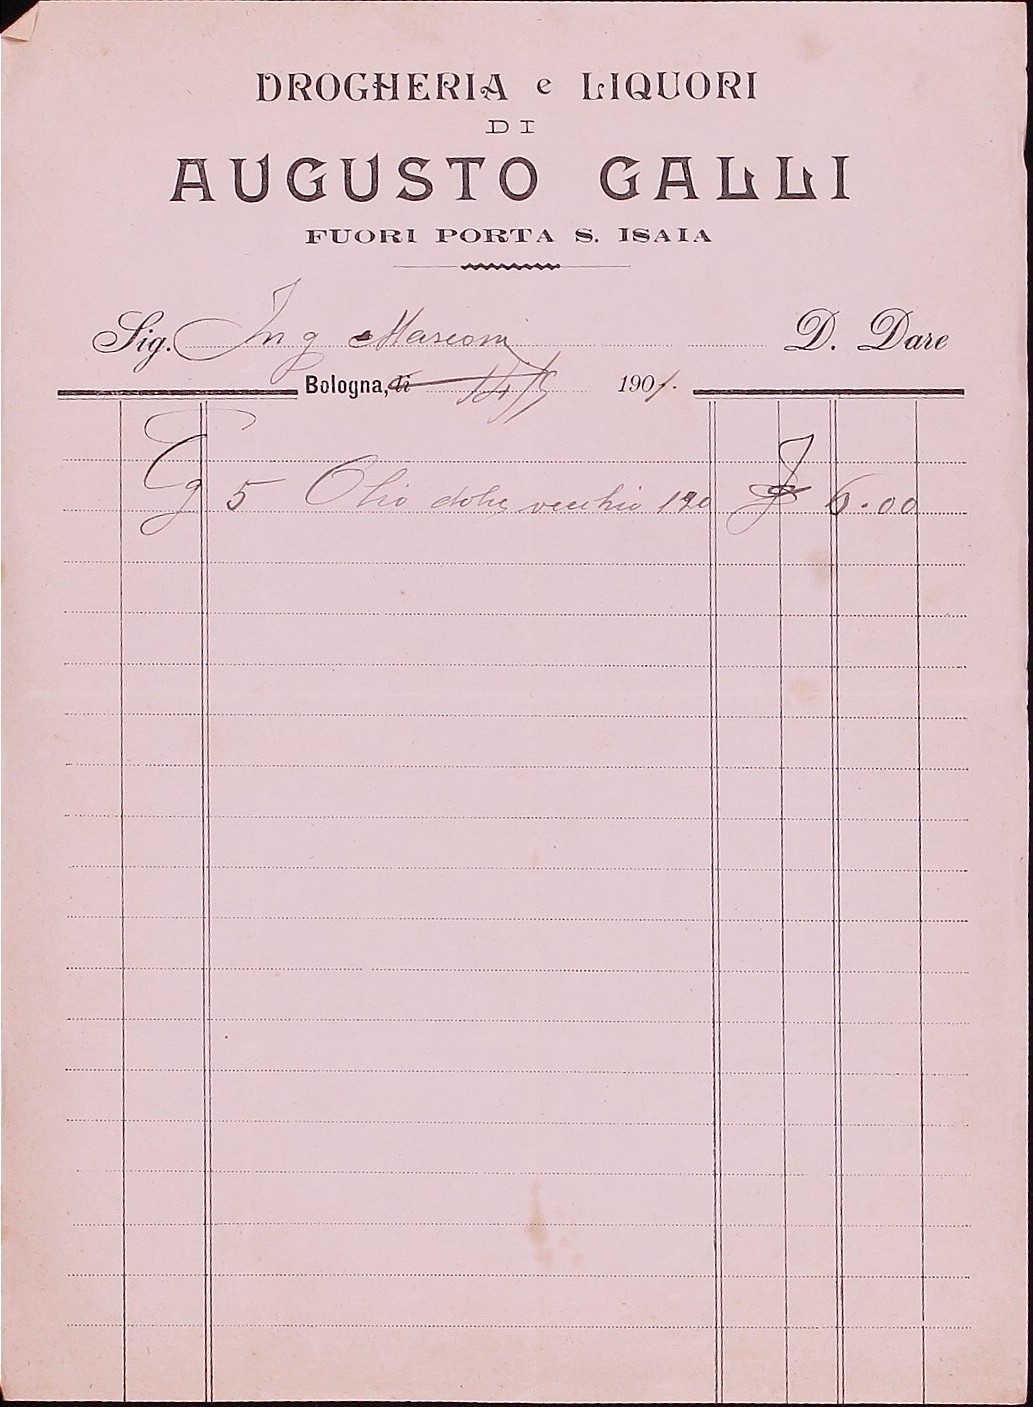 DROGHERIA e LIQUORI
DI
AUGUSTO GALLI
FUORI PORTA S. ISAIA
Sig. Ing Masconi D. Dare
Bologna, li 14/5 1901.
Cg 5 Olio dolce vecchio 120 £ 6.00